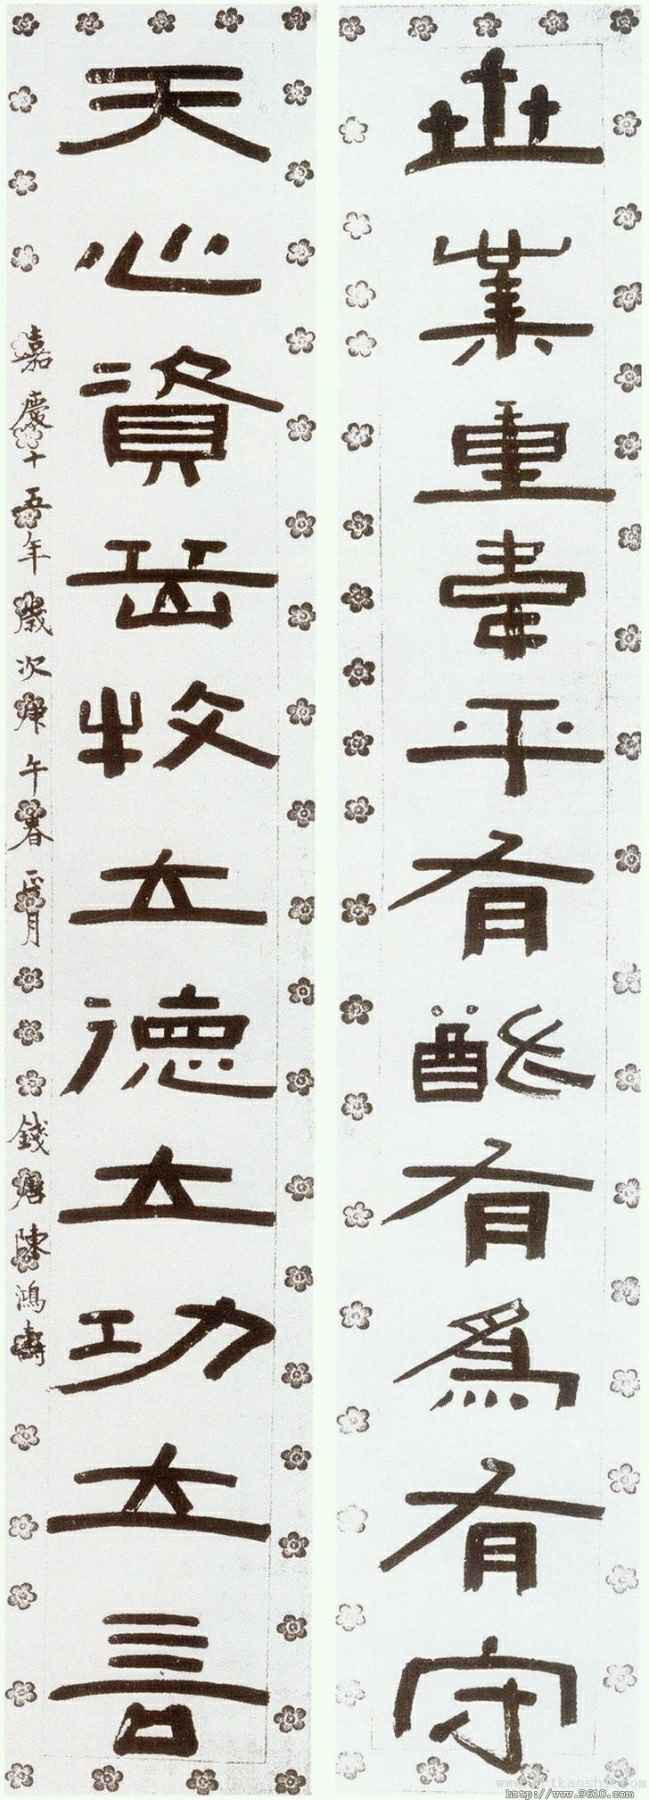 世業重韋平有猷有爲有守
天心資岳牧立德立功立言
嘉慶十五年歲次庚午春正月 錢唐陳鴻壽
http://www.9610.com